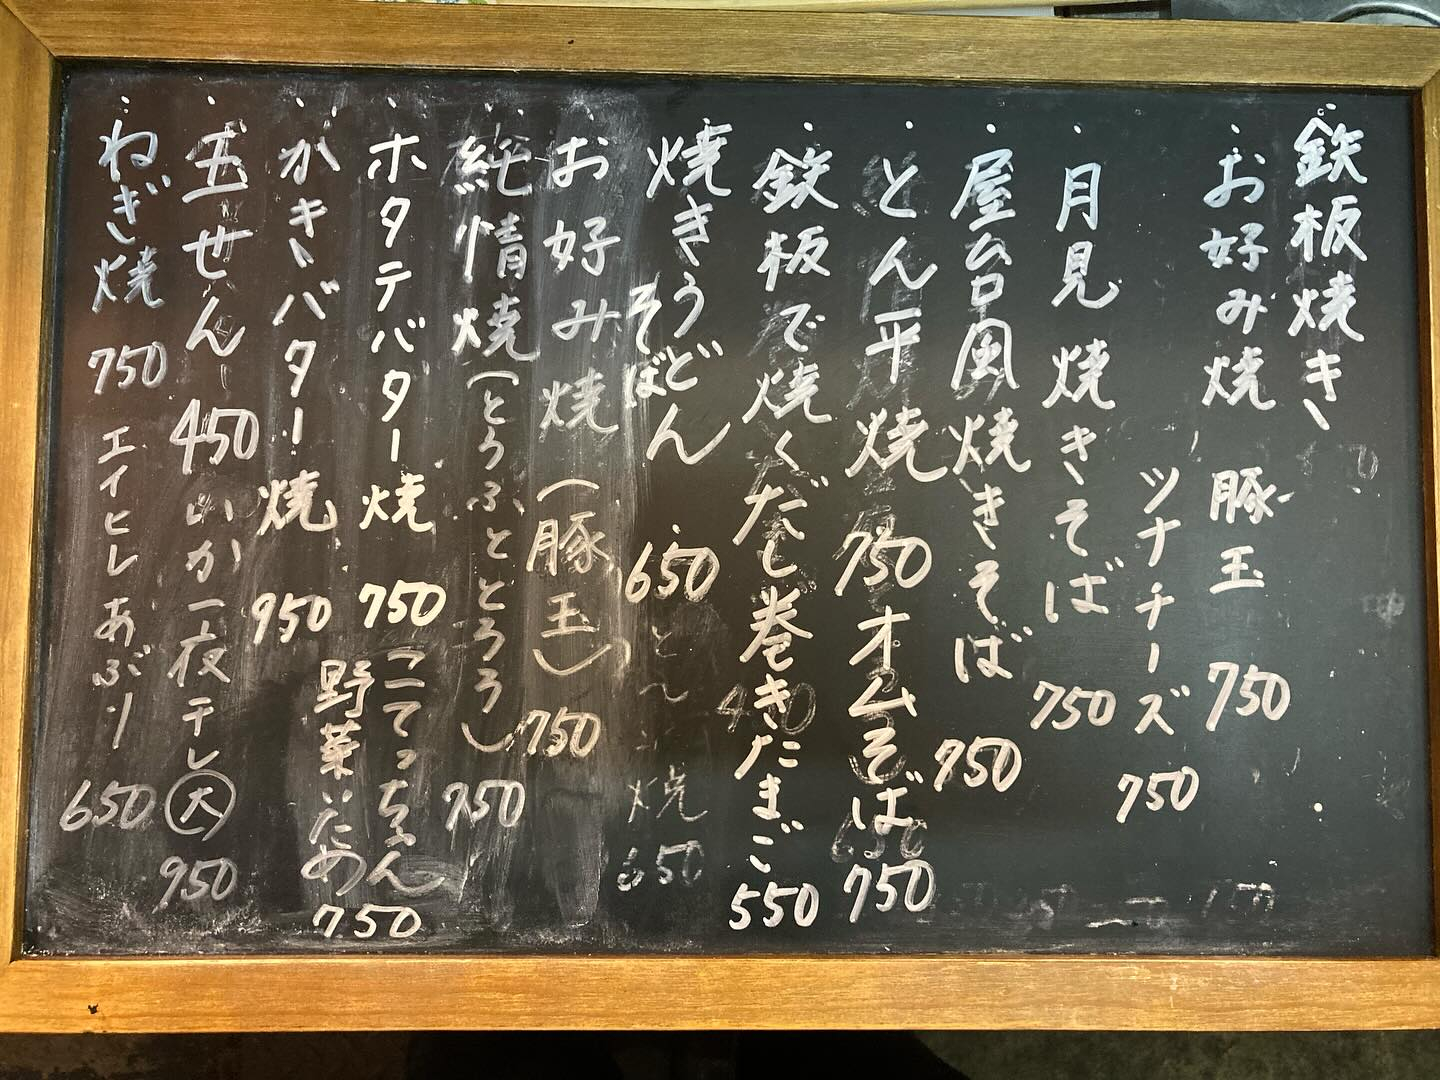 鉄板焼き
お好み焼 豚玉 750
ツナチーズ 750
月見焼きそば 750
屋台風焼きそば 750
とん平焼 750 オムそば 750
鉄板で焼くだし巻きたまご 550
焼きうどん 650
そば
お好み焼(豚玉) 750
純情焼(とうふととろろ) 750
ホタテバター焼 750 こてっちゃん
野菜いため 750
かきバター焼 950
玉せん 450 いか一夜干し(大) 950
ねぎ焼 750 エイヒレあぶり 650